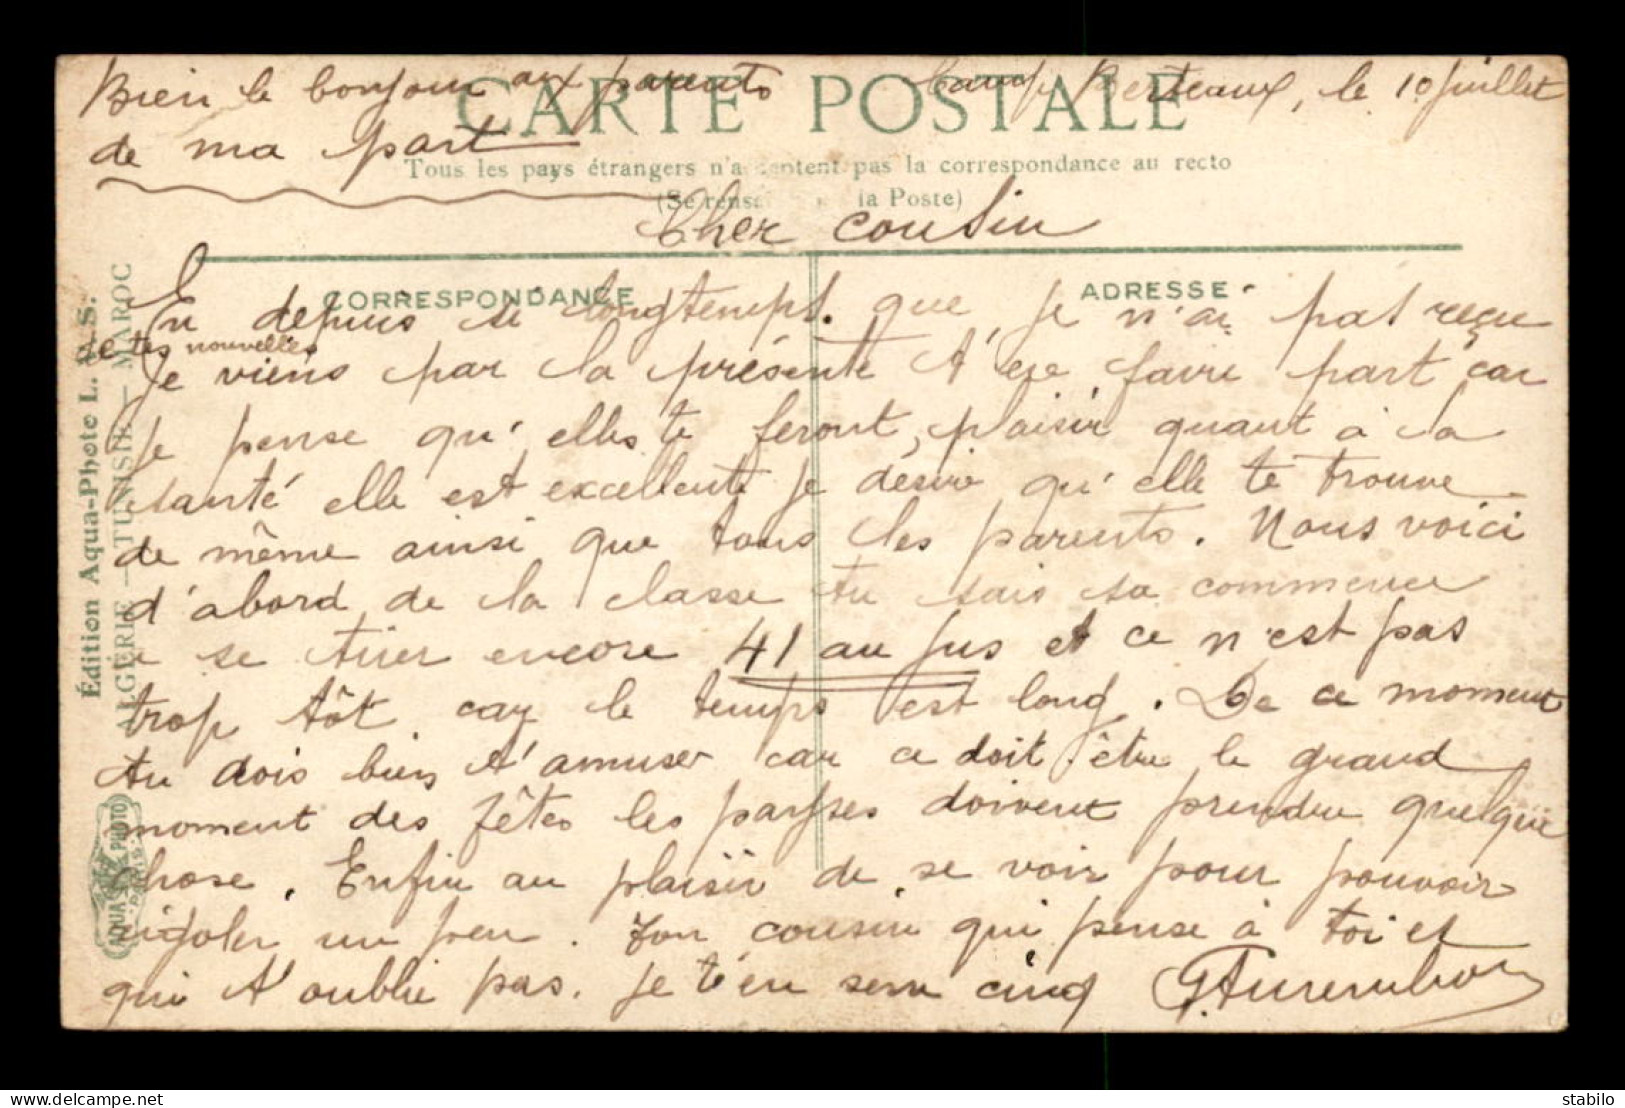 Bien le bonjour aux parents
de ma part
CARTE POSTALE
Camp Berteaux, le 10 juillet
Tous les pays étrangers n'acceptent pas la correspondance au recto
(Se rens la Poste)
Cher cousin
CORRESPONDANCE
ADRESSE
En depuis si longtemps. que je n'ai pas reçu
de tes nouvelles
Je viens par la présente t'en faire part car
je pense qu'elles te feront plaisir quant à la
santé elle est excellente je désire qu'elle te trouve
de même ainsi que tous les parents. Nous voici
d'abord de la classe tu sais sa commence
a se tirer encore 41 au jus et ce n'est pas
trop tôt car le temps est long. De ce moment
tu dois bien t'amuser car ce doit être le grand
moment des fêtes les payses doivent prendre quelque
chose. Enfin au plaisir de se voir pour pouvoir
rigoler un peu. Ton cousin qui pense à toi et
qui t'oublie pas. Je t'en serre cinq
Édition Aqua-Photo L. V. S.
ALGÉRIE — TUNISIE — MAROC
AQUA PHOTO
PARIS
www.delcampe.net
stabilo